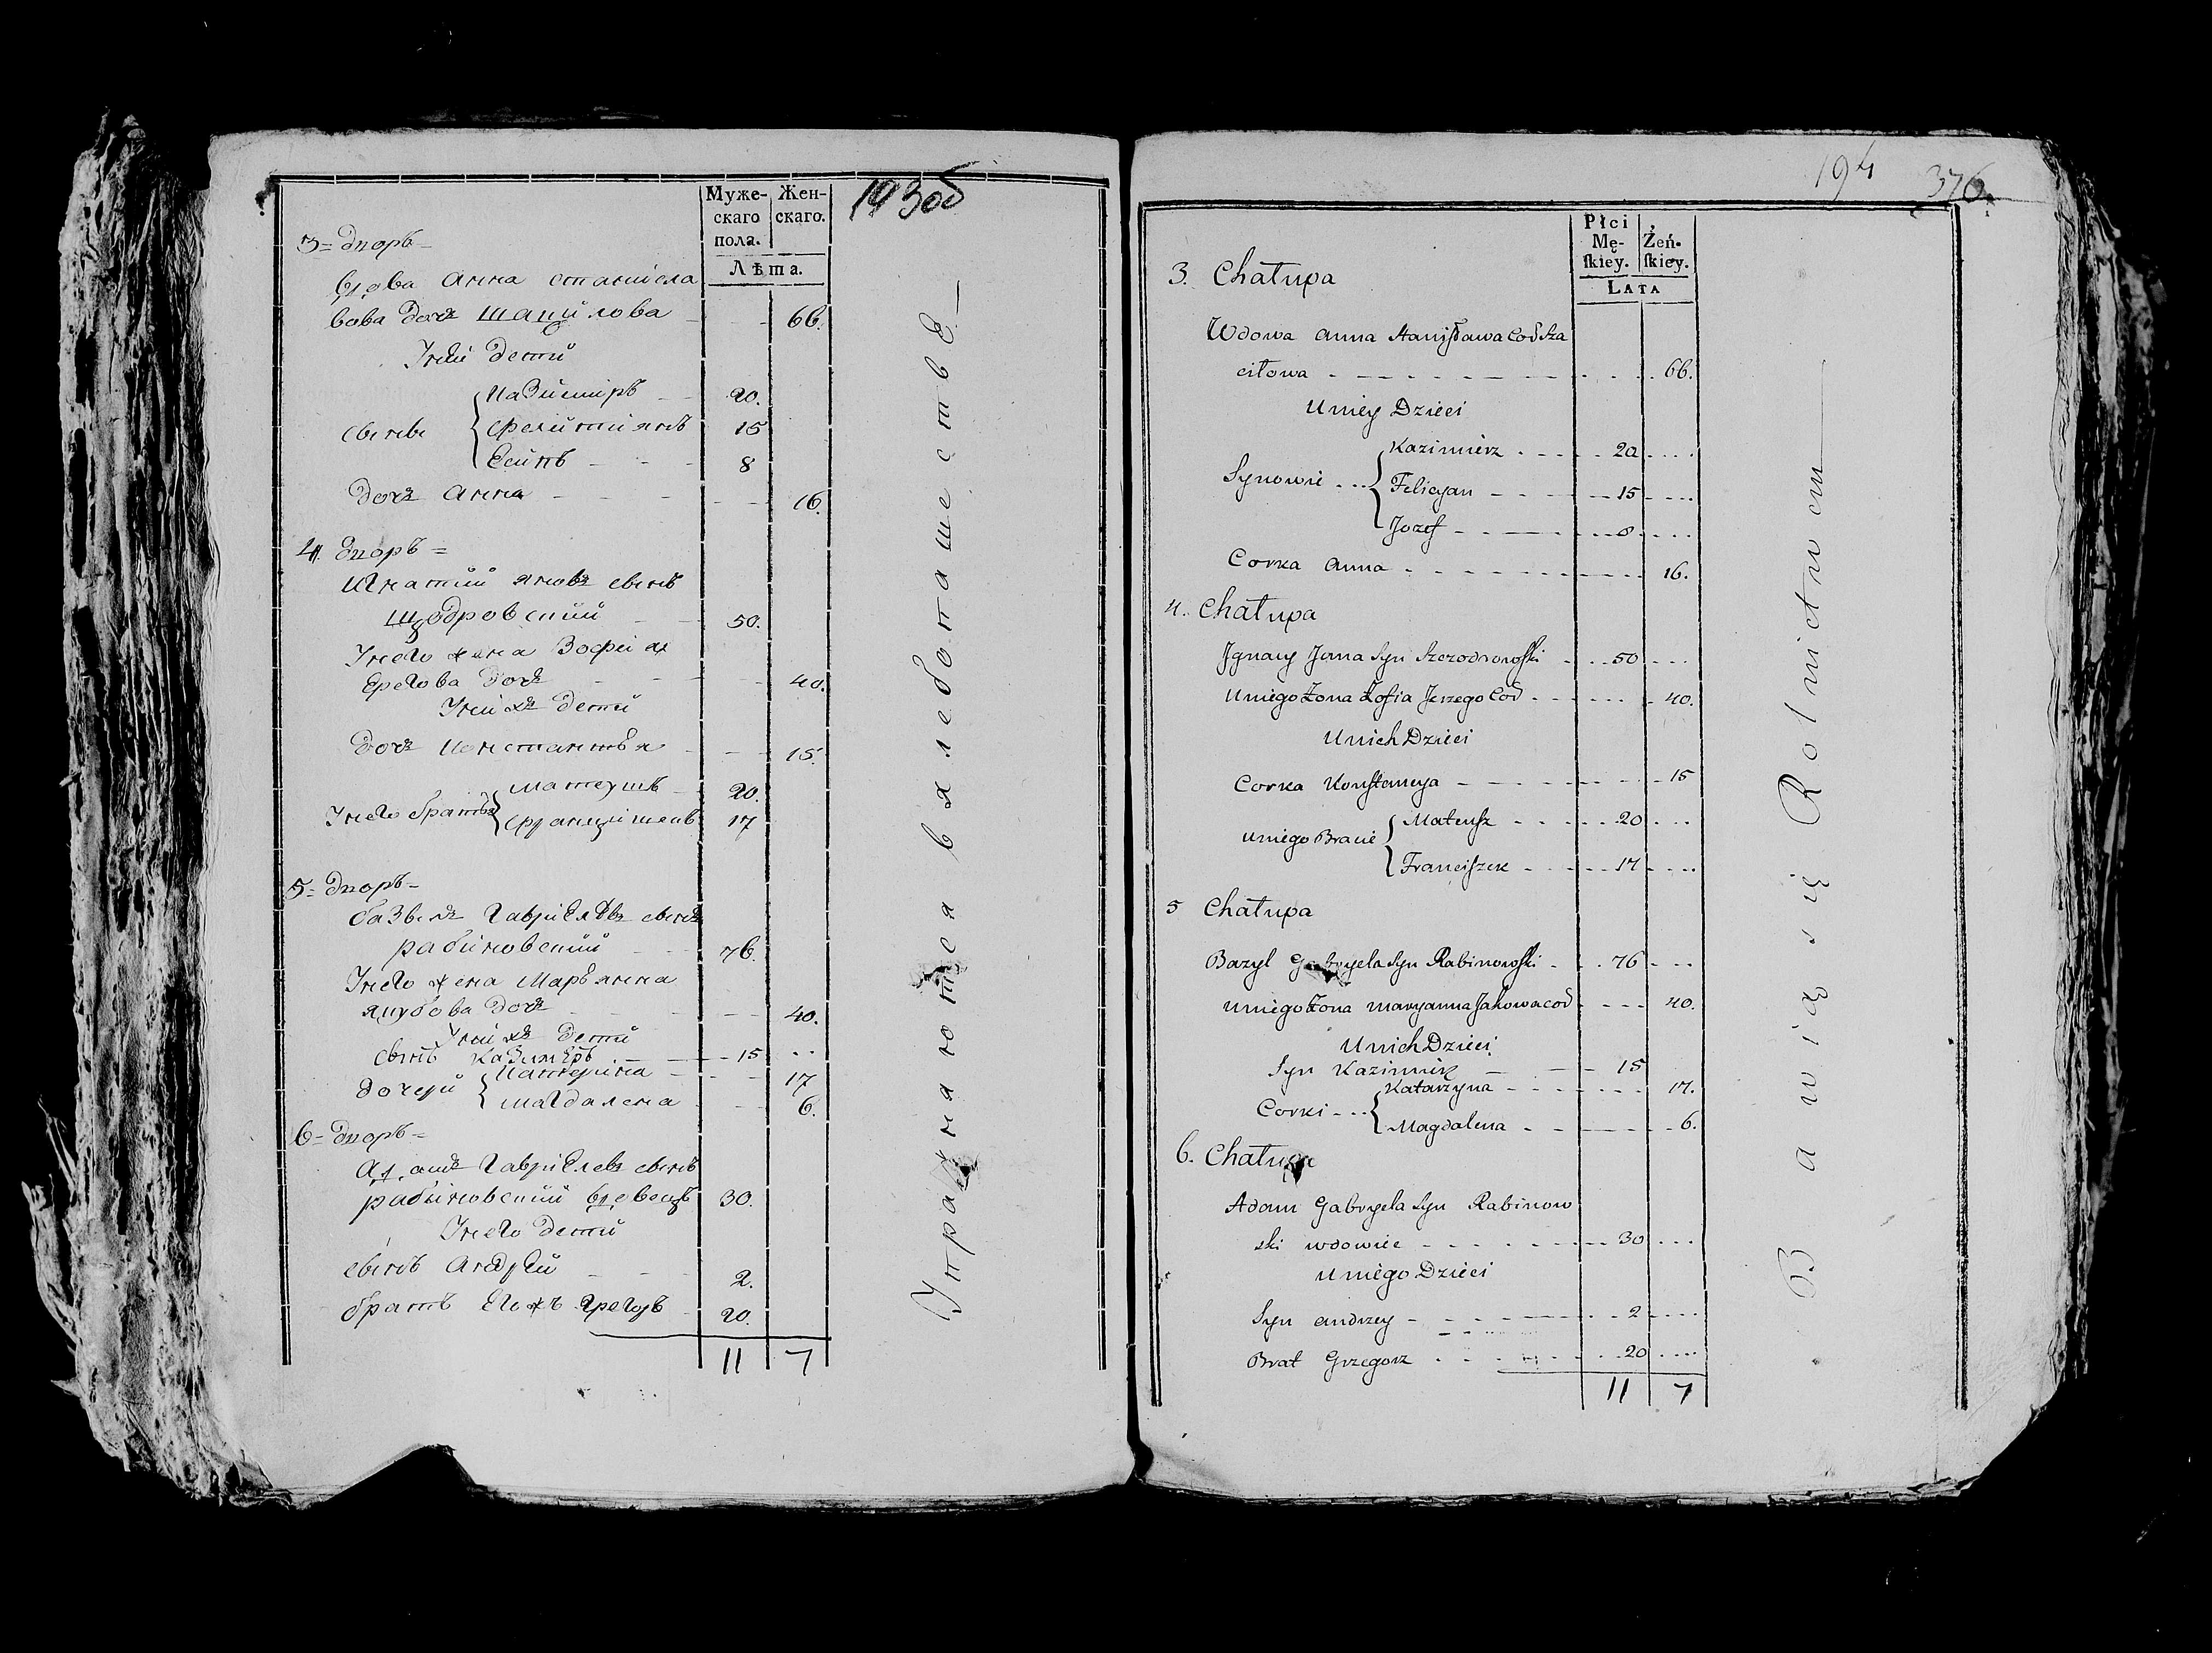 Муже-
скаго
пола.
Жен-
скаго.
Лѣта.
193об
3 = Дворъ =
вдова Анна станисла
вова дочь Шацилова - - 66.
У ней дети
Казимиръ - 20.
сыны { Фелитиянъ 15
Есипъ - - - 8
дочь Анна - - - - - 16.
4. Дворъ =
Игнатий яновъ сынъ
Щодровский - - 50.
У него жена Зофия
Ерегова дочь - - - 40.
У нихъ дети
дочь Константъя - - 15.
У него братъя { Матеушъ - 20.
Францишекъ 17
5 = Дворъ =
базыль Гавриелевъ сынъ
рабиновский - - 76.
У него жена Марьянна
якубова дочь - - - 40.
У нихъ дети
сынъ Казимеръ - - 15 ..
дочери { Катерина - - - 17
Магдалена - - 6.
6 = Дворъ =
Адамъ Гавриелевъ сынъ
рабиновский вдовецъ 30.
У него дети
сынъ Андрей - - - 2.
братъ Его жъ Грегоръ - 20.
11 7
Упражнаются в хлебопашестве —
194 376.
Płci
Mę-
ſkiey.
Żeń-
ſkiey.
LATA
3. Chałupa
Wdowa Anna Stanisława Cod Sza
ciłowa - - - - - - - - - 66.
U niey Dzieci
Kazimierz - - - - 20 ....
Synowie ... { Felicyan - - - - 15 - ...
Jozef - - - - - 8 - ...
Corka Anna - - - - - - - - 16.
4. Chałupa
Ignacy Jana Syn Szczodrowoſki - .. 50 - ...
U niego Żona Zofia Jerzego Cod - - - - - 40.
U nich Dzieci
Corka Konstancya - - - - - - - 15
U niego Bracie { Mateuſz - - - ... 20 - ...
Franciſzek - - - - - 17 - ...
5 Chałupa
Bazyl Gabryela Syn Rabinowſki - . . 76 - ...
U niego Żona Maryanna Jakowa cod - - - - 40.
U nich Dzieci
Syn Kazimierz - - - 15
Corki - .. { Katarzyna - - - - - - 17.
Magdalena - - - - - - 6.
6. Chałupa
Adam Gabryela Syn Rabinow
ski wdowiec - - - - - - - 30 ....
U niego Dzieci
Syn Andrzey - - - - - - - 2 ....
Brat Grzegorz - - - - - - - 20 ....
11 7
Bawią się Rolnictwem —